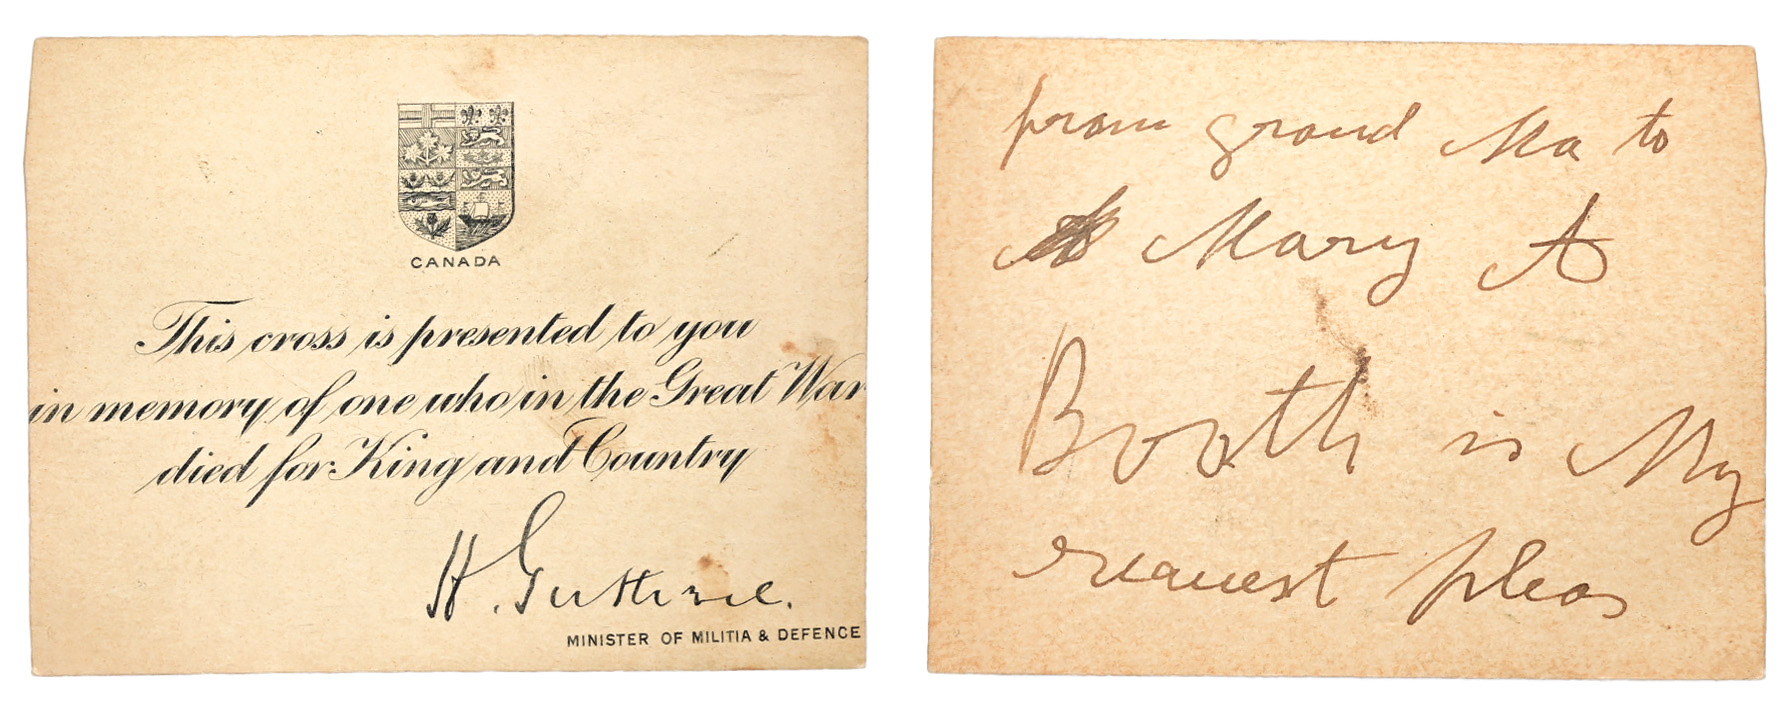 CANADA
This cross is presented to you
in memory of one who in the Great War
died for King and Country
H. Guthrie.
MINISTER OF MILITIA & DEFENCE
from grand Ma to
Mary A
Booth is My
request pleas